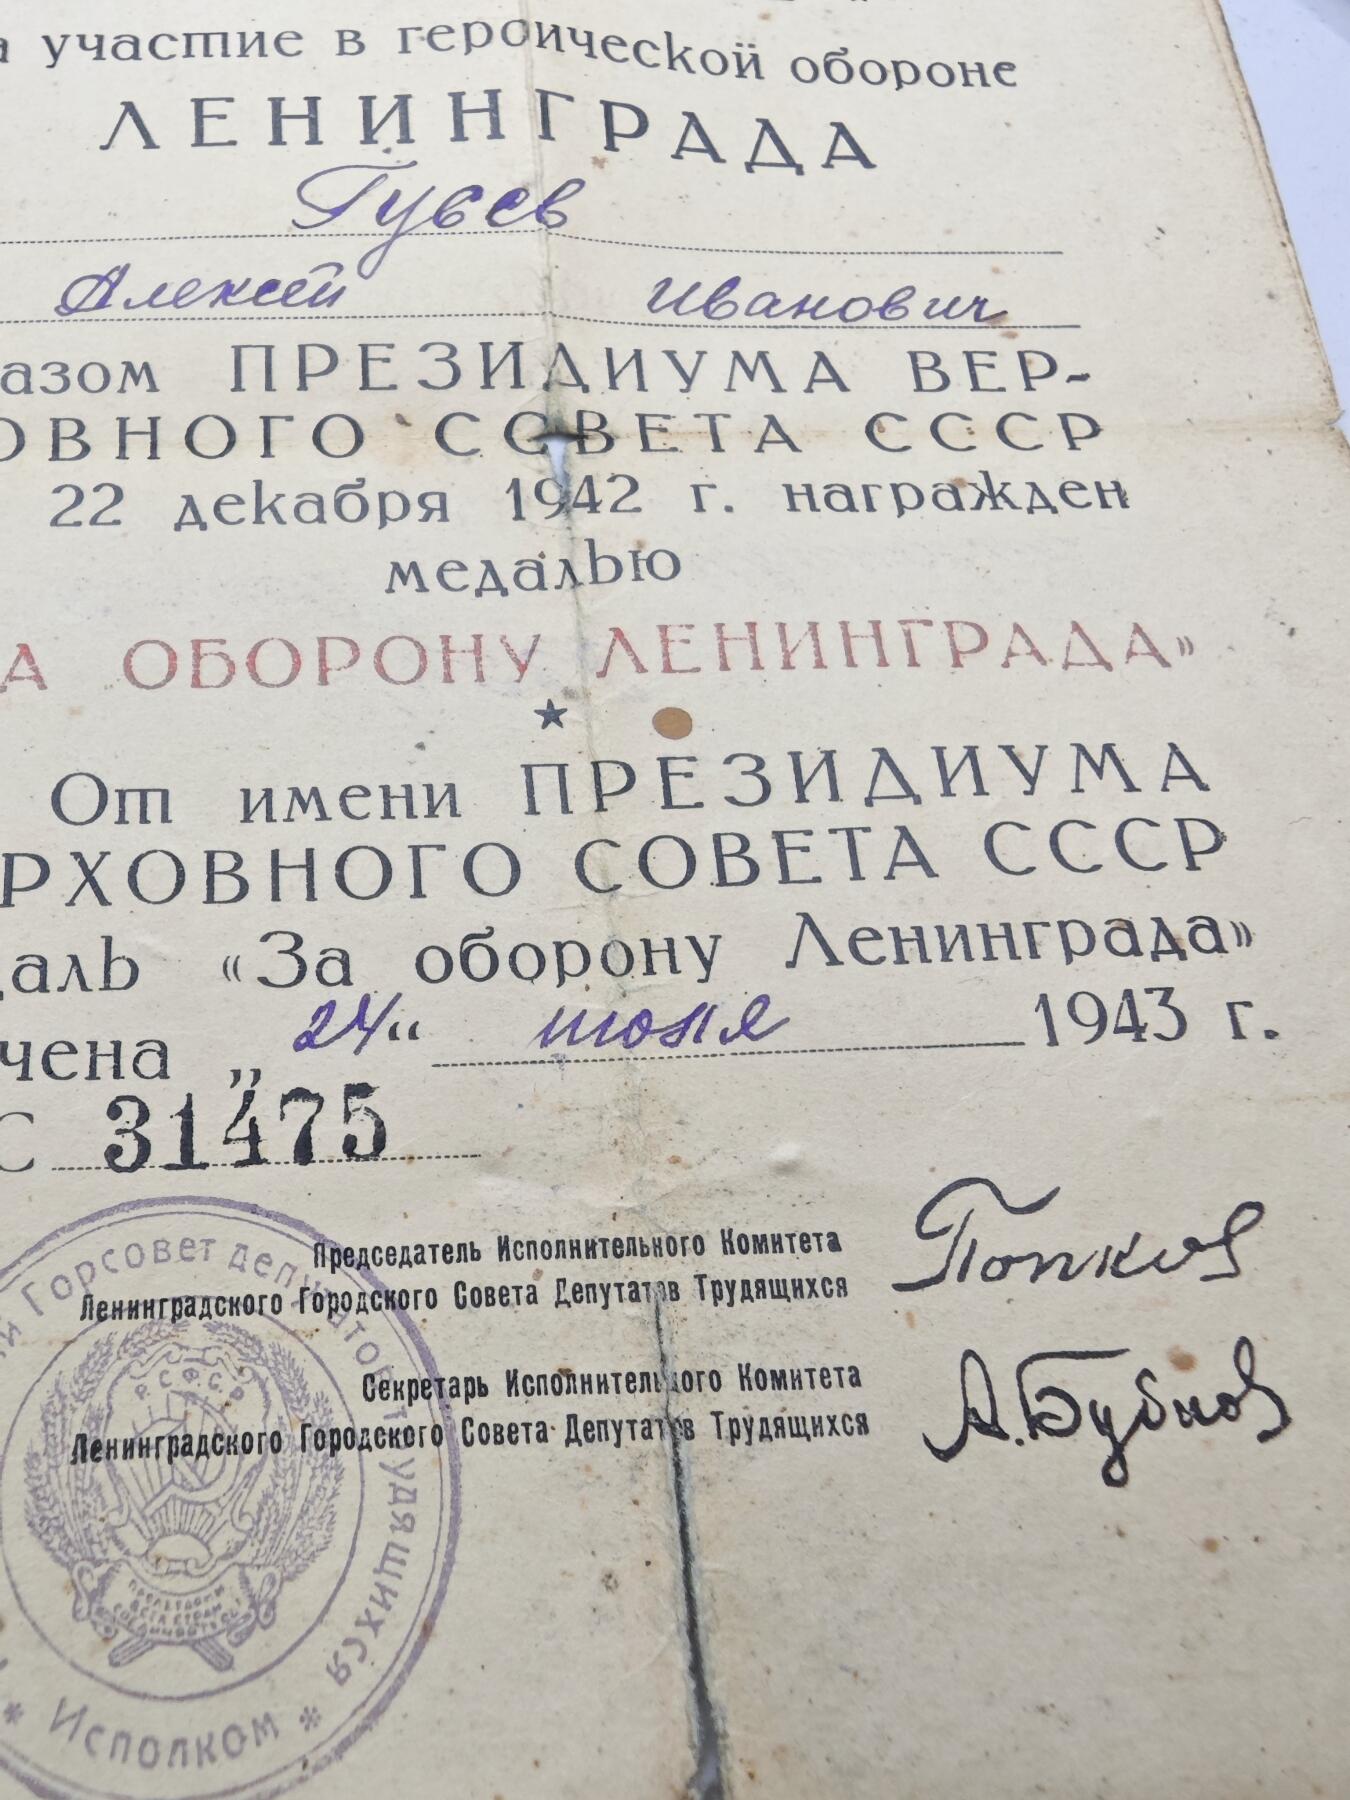 а участие в героической обороне
ЛЕНИНГРАДА
Гусев
Алексей Иванович
азом ПРЕЗИДИУМА ВЕР-
ОВНОГО СОВЕТА СССР
22 декабря 1942 г. награжден
медалью
А ОБОРОНУ ЛЕНИНГРАДА»
От имени ПРЕЗИДИУМА
РХОВНОГО СОВЕТА СССР
даль «За оборону Ленинграда»
чена „24“ июля 1943 г.
С 31475
Председатель Исполнительного Комитета
Ленинградского Городского Совета Депутатов Трудящихся
Попков
Секретарь Исполнительного Комитета
Ленинградского Городского Совета Депутатов Трудящихся
А. Бубнов
й Горсовет депутатов трудящихся * Исполком *
Р.С.Ф.С.Р
ПРОЛЕТАРИИ
ВСЕХ СТРАН
СОЕДИНЯЙТЕСЬ